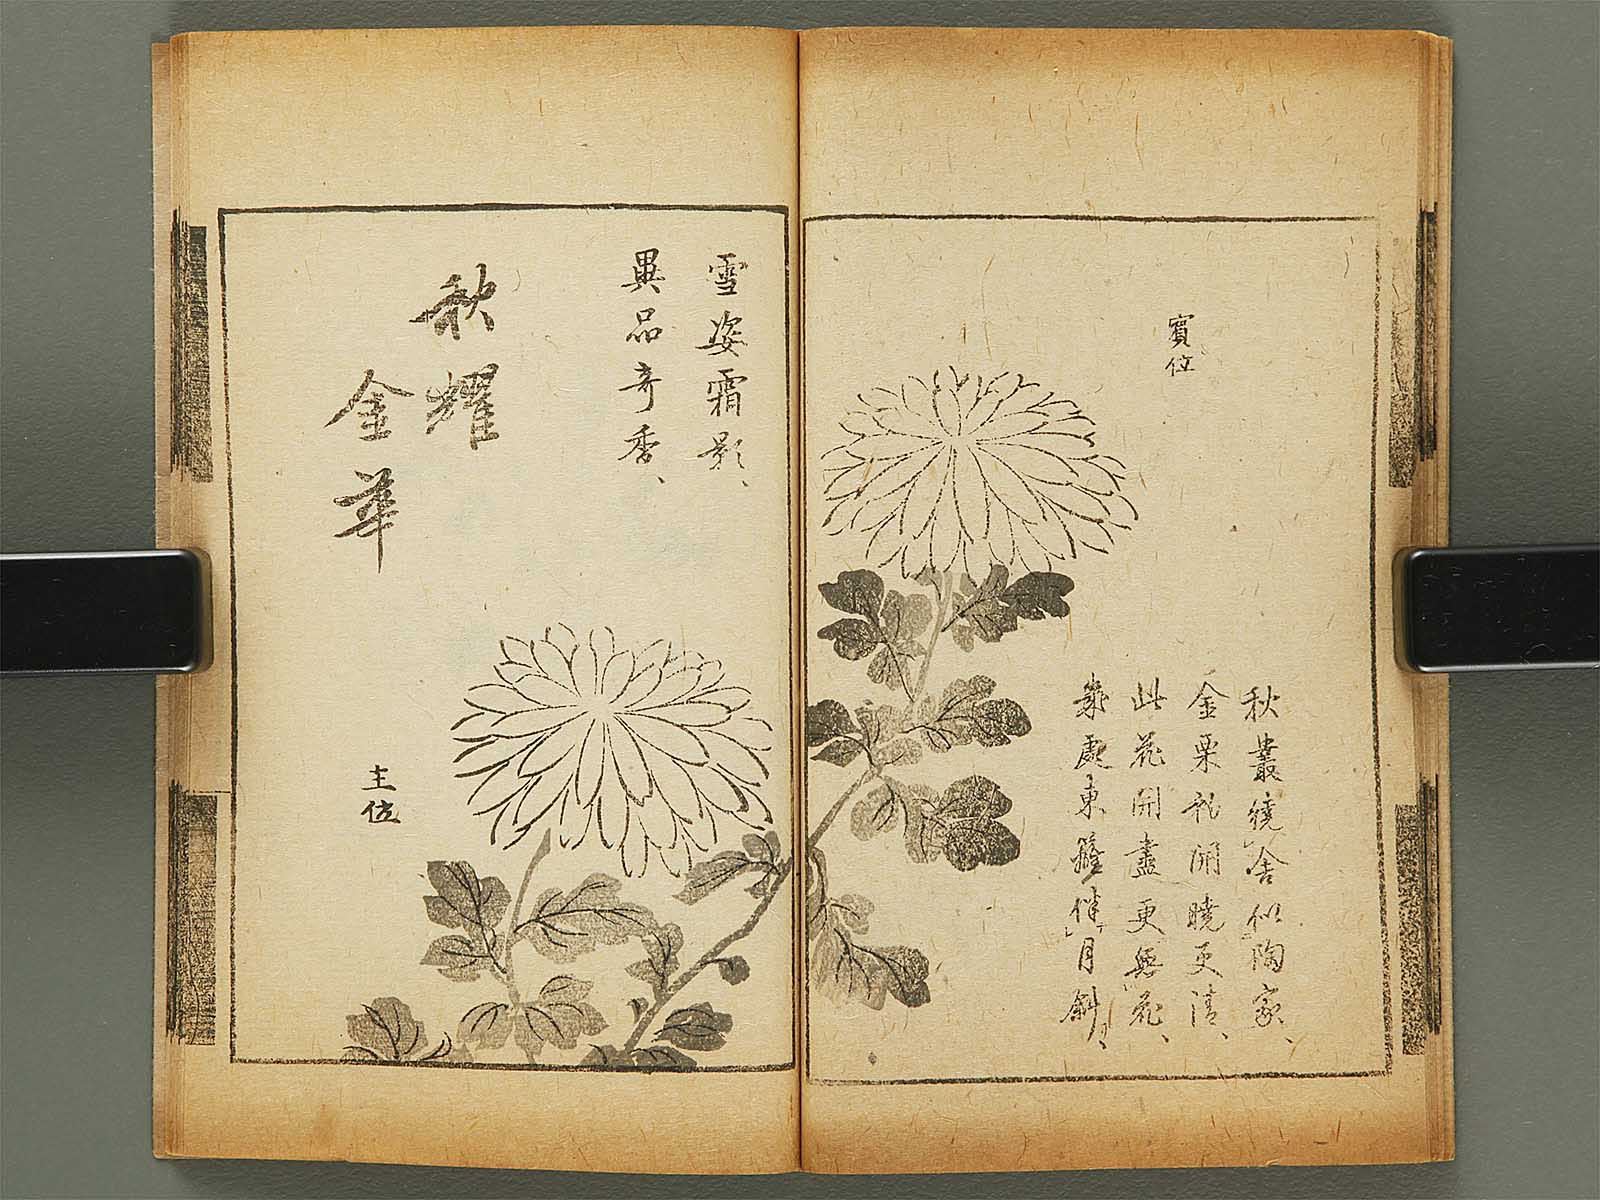 賓位
秋叢繞舍似陶家、
金栗初開曉更清、
此花開盡更無花、
幾處東籬伴月斜、
雪姿霜影、
異品奇香、
秋耀
金華
主位